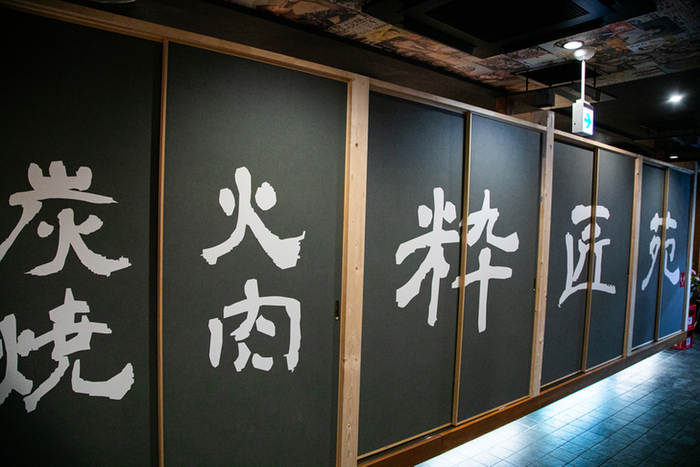 炭焼
火肉
粋
匠
苑